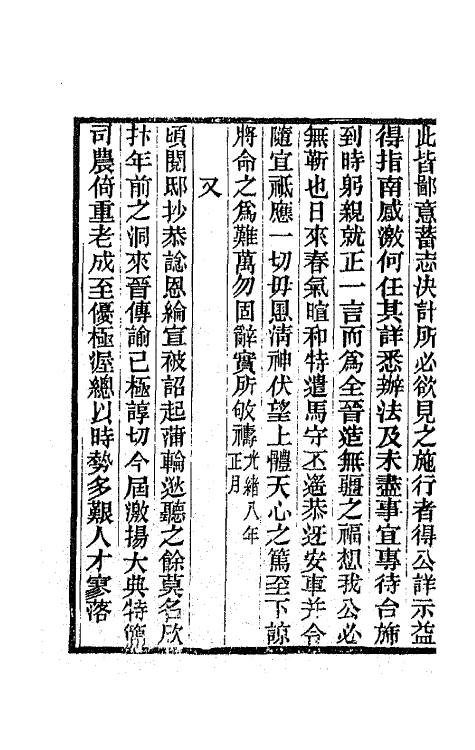 此皆鄙意蓄志決計所必欲見之施行者得公詳示益
得指南感激何任其詳悉辦法及未盡事宜專待台旆
到時躬親就正一言而爲全晉造無疆之福想我公必
無靳也日來春氣暄和特遣馬守丕遙恭迓安車幷令
隨宜祗應一切毋風淸神伏望上體天心之篤至下諒
將命之爲難萬勿固辭實所敬禱光緖八年正月
又
頃閱邸抄恭諗恩綸宣被詔起蒲輪逖聽之餘莫名欣
抃年前之洞來晉傳諭已極諄切今屆激揚大典特簡
司農倚重老成至優極渥總以時勢多艱人才寥落